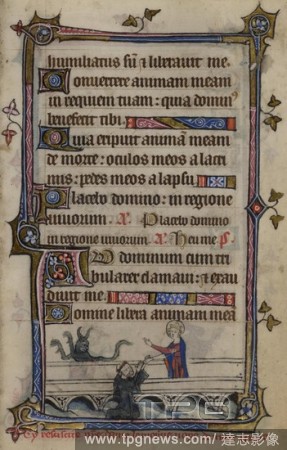 humiliatus sũ ⁊ liberauit me
Conuertere animam meam
in requiem tuam : quia dominꝰ
benefecit tibi
Quia eripuit animã meam
de morte : oculos meos a lacri
mis : pedes meos a lapsu
Placebo domino : in regione
uiuorum. A. Placebo domino
in regione uiuorum. A. Heu me p̃.
AD dominum cum tri
bularer clamaui : ⁊ exau
diuit me.
Domine libera animam mea
TPG
www.tpgnews.com / 達志影像